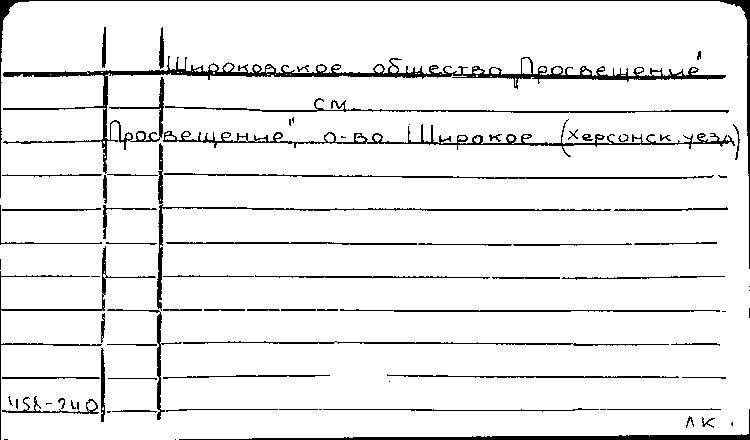 Широковское общество „Просвещение"
см.
Просвещение", о-во Широкое (Херсонск. уезд)
458-240
ЛК.